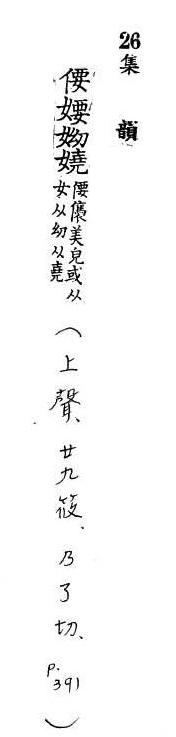 26
集韻
偠㜰㚭嬈 偠儾美皃或从
女从幼从堯
(上聲、廿九筱、乃了切、p.391)